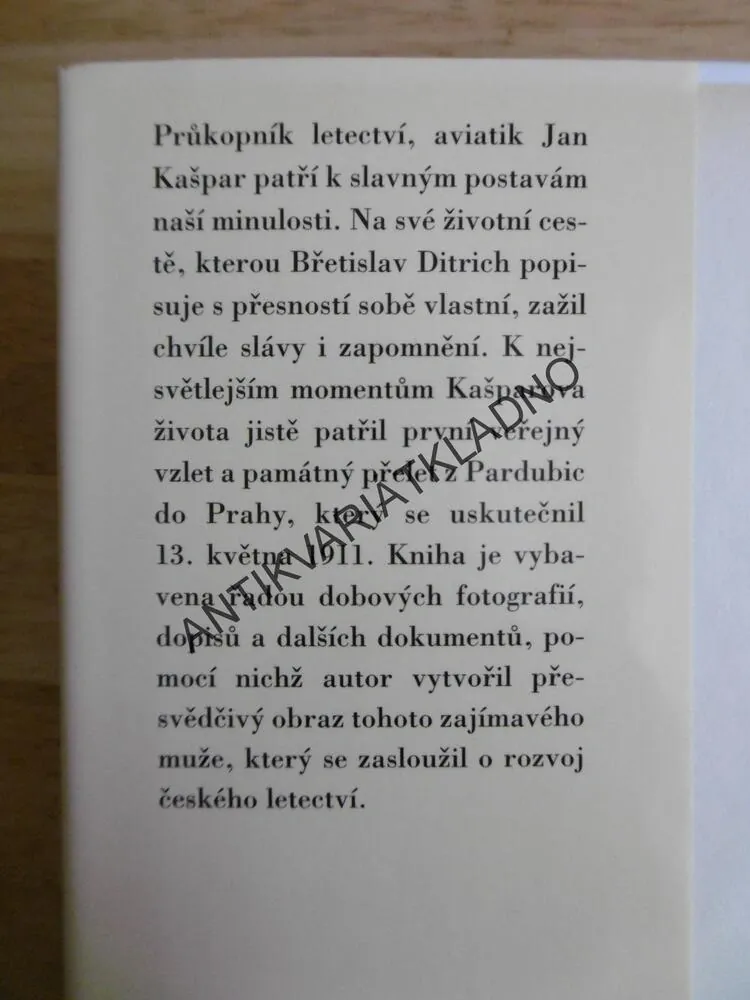 Průkopník letectví, aviatik Jan
Kašpar patří k slavným postavám
naší minulosti. Na své životní ces-
tě, kterou Břetislav Ditrich popi-
suje s přesností sobě vlastní, zažil
chvíle slávy i zapomnění. K nej-
světlejším momentům Kašparova
života jistě patřil první veřejný
vzlet a památný přelet z Pardubic
do Prahy, který se uskutečnil
13. května 1911. Kniha je vyba-
vena řadou dobových fotografií,
dopisů a dalších dokumentů, po-
mocí nichž autor vytvořil pře-
svědčivý obraz tohoto zajímavého
muže, který se zasloužil o rozvoj
českého letectví.
ANTIKVARIATKLADNO